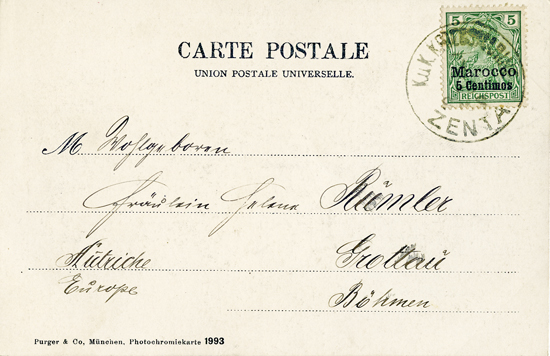 CARTE POSTALE
UNION POSTALE UNIVERSELLE.
5 5
Marocco
5 Centimos
REICHSPOST
K.u.K.
ZENTA
M. Wohlgeboren
Fräulein Helene Rümler
Autriche Grottau
Europe Böhmen
Purger & Co, München, Photochromiekarte 1993